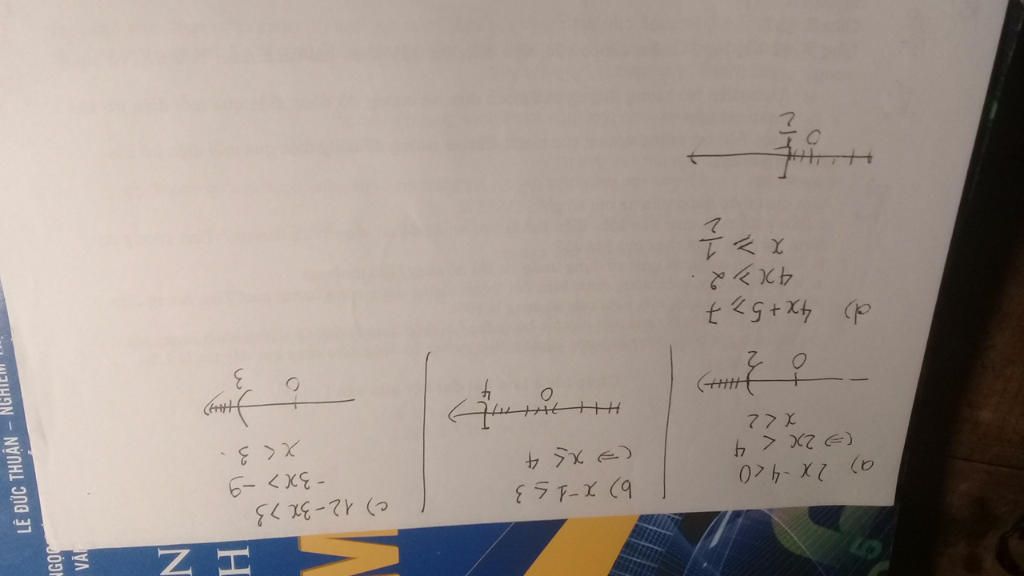 a) 2x - 4 < 0
<=> 2x < 4
x < 2
0 2
b) x - 1 ≤ 3
<=> x ≤ 4
0 4
c) 12 - 3x > 3
- 3x > -9
x < 3
0 3
d) 4x + 5 ≥ 7
4x ≥ 2
x ≥ 1/2
0 1/2
LÊ ĐỨC THUẬN – NGHIÊM
N
H
M
5